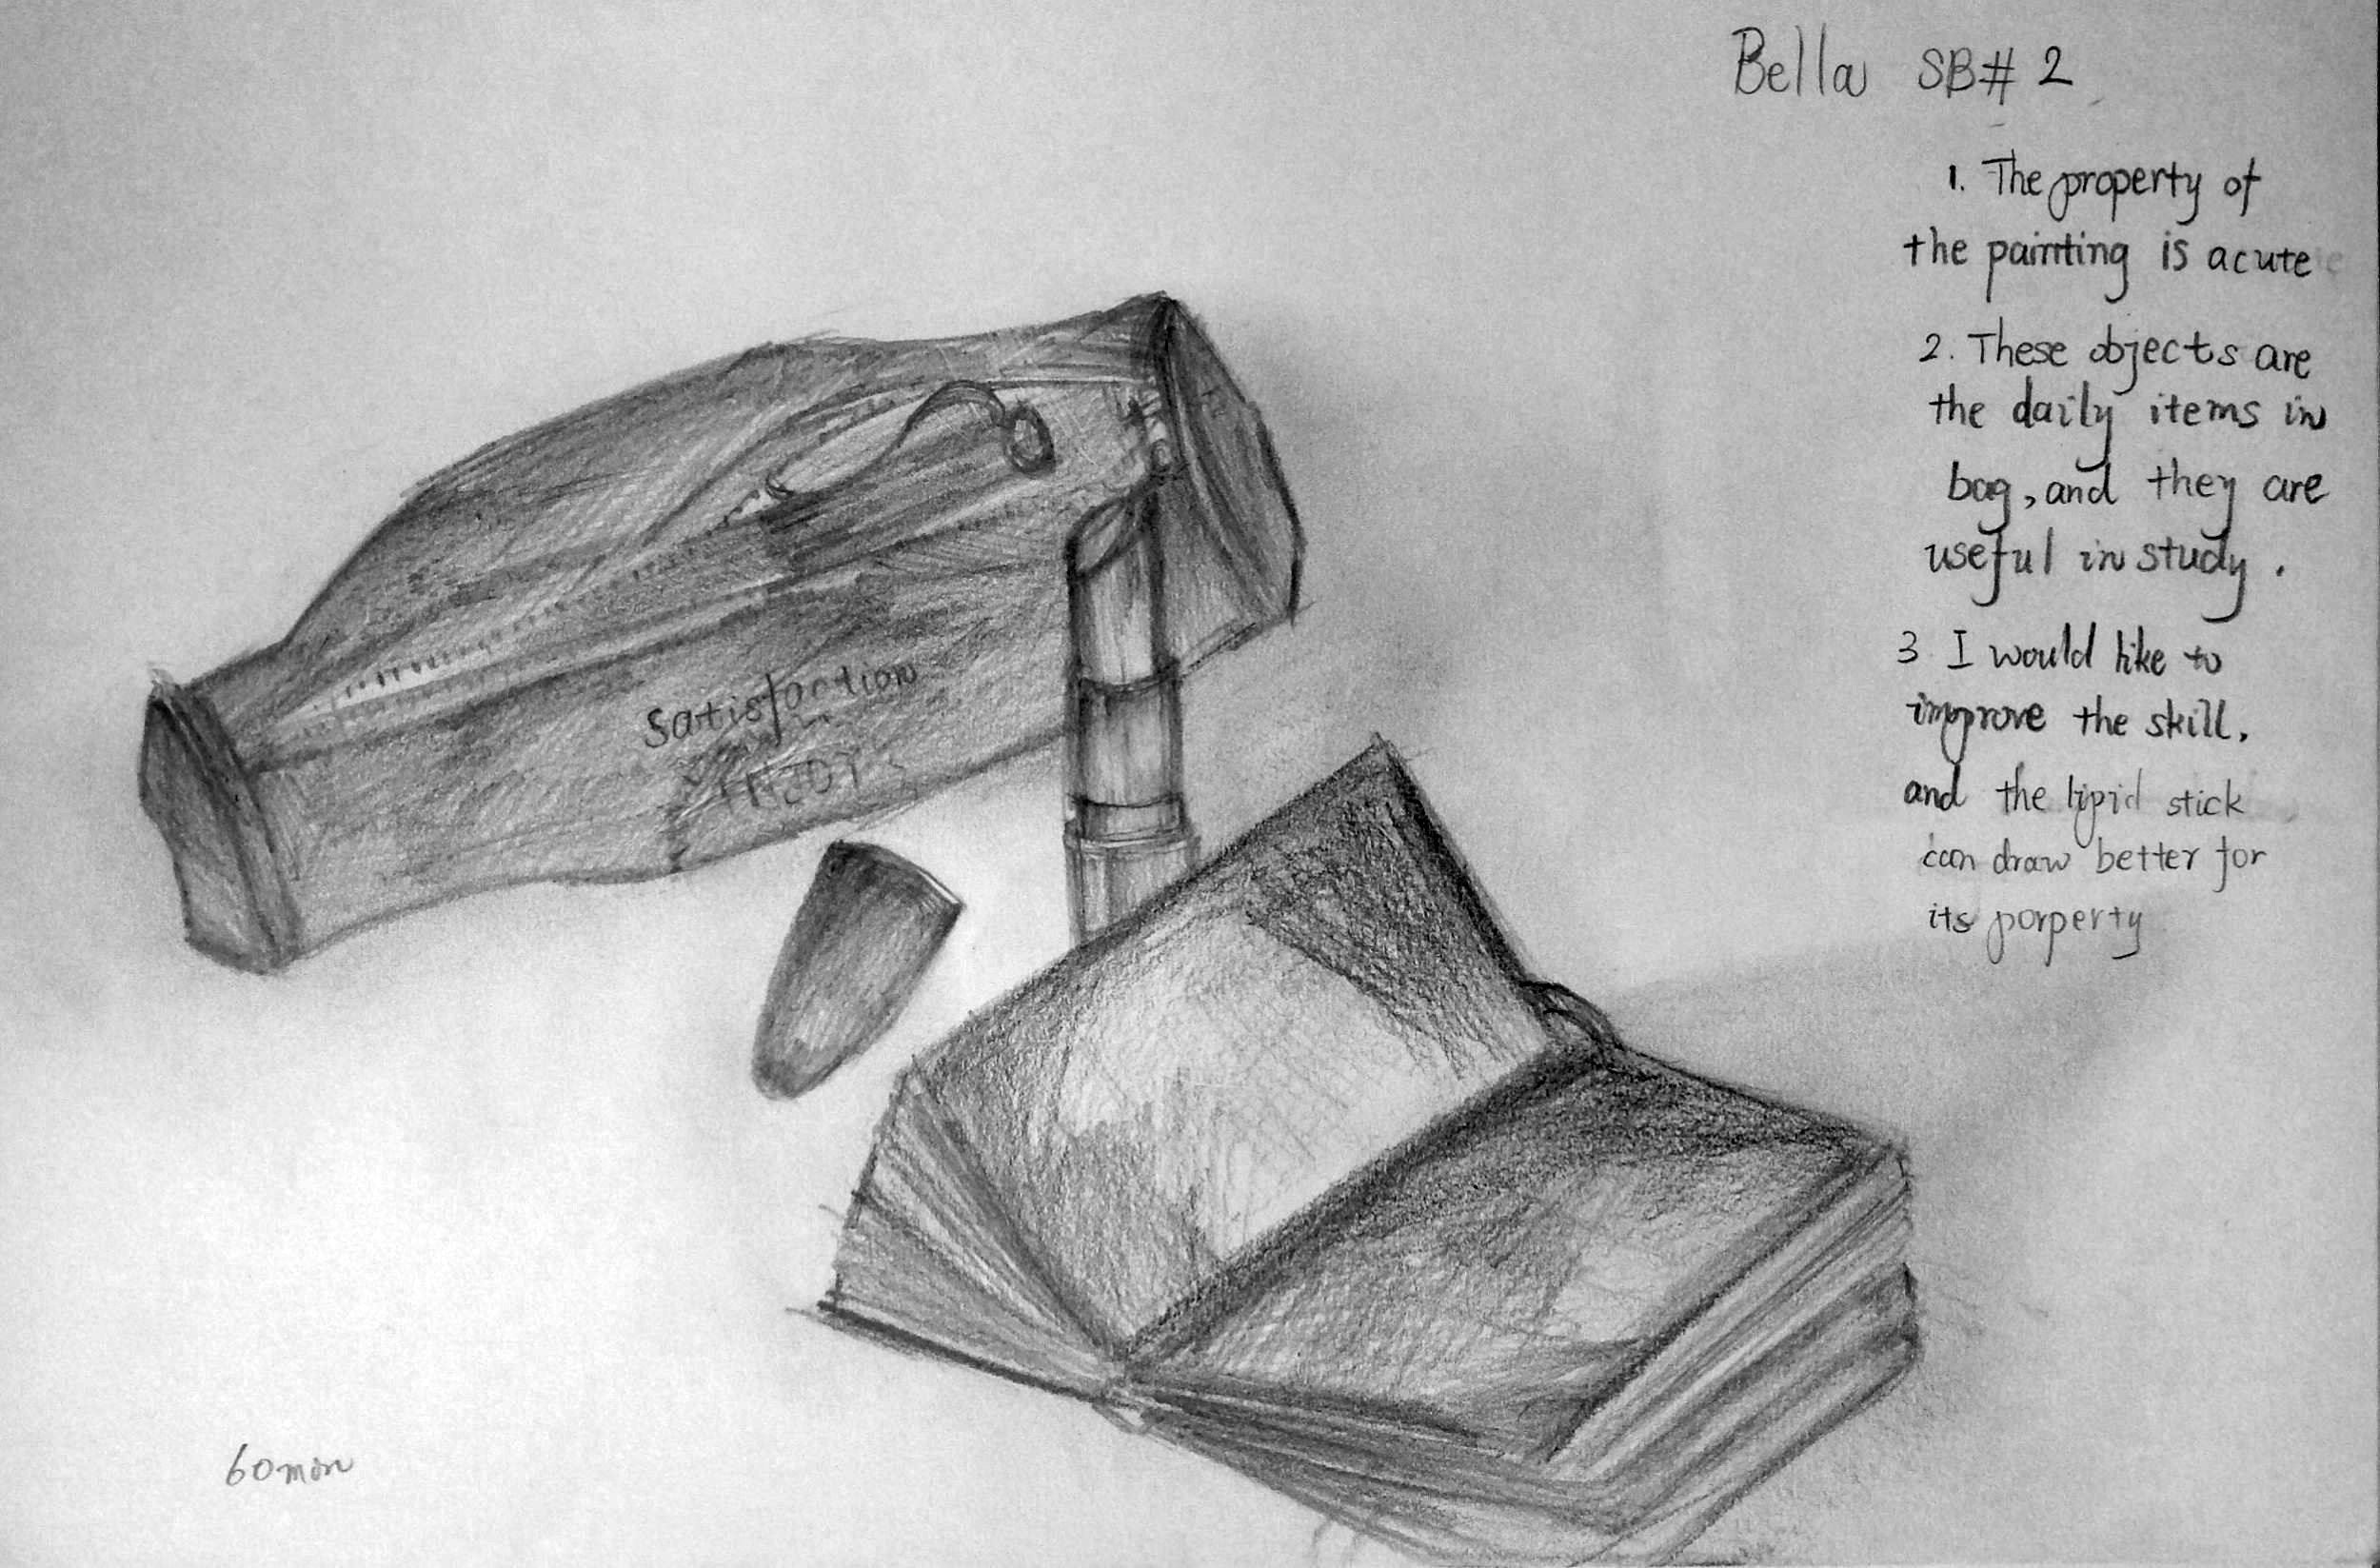 Bella SB# 2
1. The property of
the painting is acute
2. These objects are
the daily items in
bag, and they are
useful in study.
3 I would like to
improve the skill,
and the lipid stick
can draw better for
its porperty
Satisfaction
60min